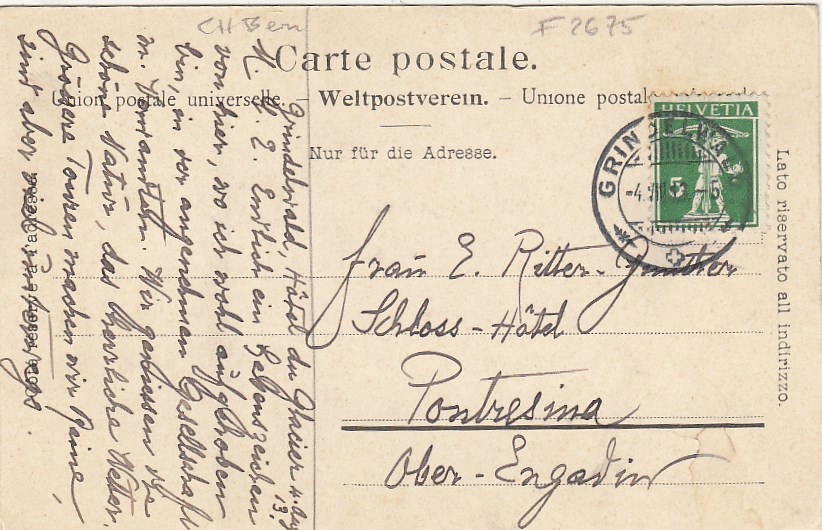 CH Bern
F 2675
Carte postale.
Union postale universelle. — Weltpostverein. — Unione postale
Nur für die Adresse.
HELVETIA
5
GRINDELWALD
Lato riservato all indirizzo.
Côté réservé à l'adresse.
Frau E. Ritter-Günther
Schloss-Hôtel
Pontresina
Ober-Engadin
Grindelwald, Hôtel du Glacier 4. Aug
13.
M. l. E. Endlich ein Lebenszeichen
von hier, wo ich wohl aufgehoben
bin, in der angenehmen Gesellschaft
m. Verwandten. Wir geniessen die
schöne Natur, das herrliche Wetter.
Grössere Touren machen wir keine,
sind aber viel unterwegs.